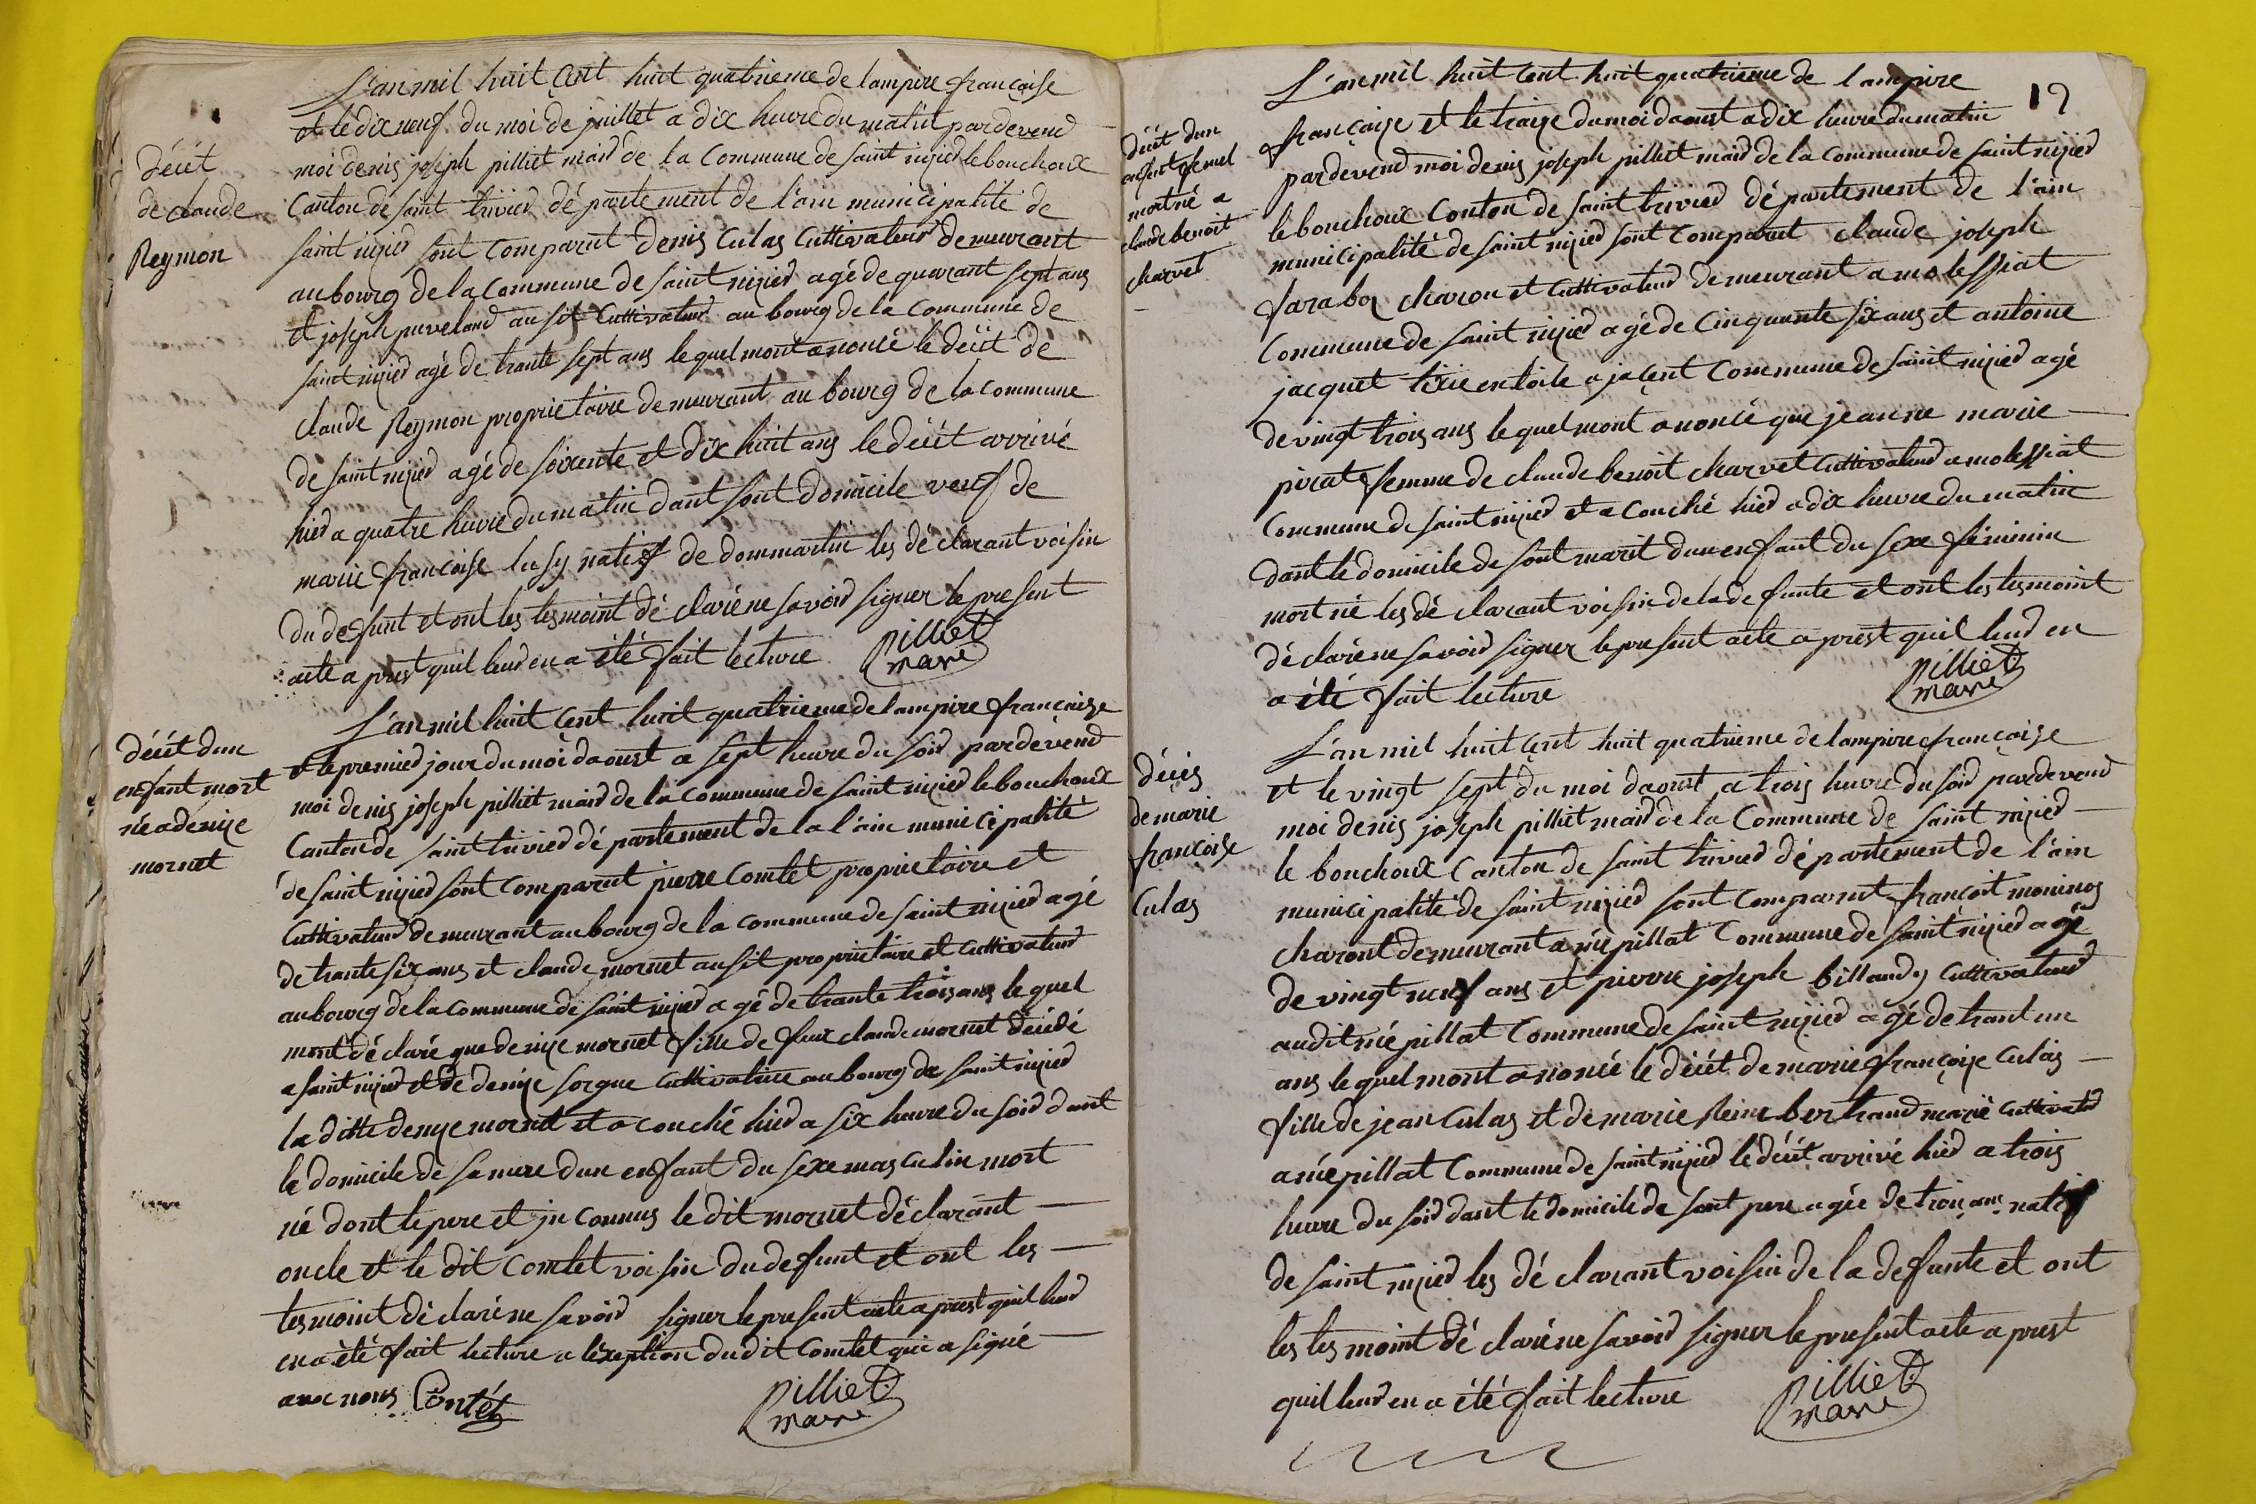 L'an mil huit cent huit quatrieme de lampire francaise
et le dix neuf du moi de juillet a dix heure du matin pardevend
décét
de claude
Reymon
moi denis joseph pilliet maid de la Commune de saint nizied lebouchoux
Canton de saint trivied département de l'ain municipalité de
saint nizied sont comparut denis Culas Cuttivateud demeurant
au bourg de la commune de saint nizied agé de quarant sept ans
et joseph puveland ausit Cuttivateud au bourg de la commune de
saint nizied agé de trante sept ans lequel mont anoncé le décét de
claude Reymon proprietaire demeurant au bourg de la commune
de saint nizied agé de soixente et dix huit ans le décét arrivé
hied a quatre heure du matin dant sont domicile veuf de
marie francoise lusy natif de dommartin les déclarant voisin
du defunt et ont les tesmoint déclaré ne savoid signer le present
acte a prest quil leud en a été fait lecture
Pilliet
maire
L'an mil huit cent huit quatrieme de lampire francaize
décét dun
enfant mort
né a denize
mornet
et le premied jour du moi daoust a sept heure du soid pardevend
moi denis joseph pilliet maid de la commune de saint nizied lebouchoux
Canton de saint trivied département de la l'ain municipalité
de saint nizied sont comparut pierre Comtet proprietaire et
Cuttivateud demeurant au bourg de la commune de saint nizied agé
de trante six ans et claude mornet ausit proprietaire et Cuttivateud
au bourg de la commune de saint nizied agé de trante trois ans lequel
mont déclaré que denize mornet fille de feux claude mornet décédé
a saint nizied et de denize sorgue Cuttivatrice au bourg de saint nizied
la ditte denize mornet et a couché hied a six heure du soid dant
le domicile de sa mere dun enfant du sexe masculin mort
né dont le pere et jnconnus le dit mornet déclarant
oncle et le dit Comtet voisin du defunt et ont les
tesmoint déclaré ne savoid signer le present acte a prest quil leud
en a été fait lecture a lexeption du dit Comtet qui a signé
avec nous Contét
Pilliet
maire
19
L'an mil huit cent huit quatrieme de lampire
décét dun
enfent femel
mort né a
claude benoit
charvet
francaize et le traize du moi daoust a dix heure du matin
pardevend moi denis joseph pilliet maid de la commune de saint nizied
le bouchoux Conton de saint trivied département de l'ain
municipalité de saint nizied sont comparut claude joseph
faraboz charon et Cuttivateud demeurant a molessiat
Commune de saint nizied agé de cinquante six ans et antoine
jacquet tixie en toile a jacent Commune de saint nizied agé
de vingt trois ans lequel mont anoncé que jeanne marie
pirat femme de claude benoit charvet Cuttivateud a molessiat
Commune de saint nizied et a couché hied a dix heure du matin
dant le domicile de sont marit dun enfant du sexe féminin
mort né les déclarant voisin de la defunte et ont les tesmoint
déclaré ne savoid signer le present acte a prest quil leud en
a été fait lecture
Pilliet
maire
L'an mil huit cent huit quatrieme de lampire francaize
décés
de marie
francoise
Culas
et le vingt sept du moi daoust a trois heure du soid pardevend
moi denis joseph pilliet maid de la Commune de saint nizied
le bouchoux Canton de saint trivied département de l'ain
municipalité de saint nizied sont comparut francoit moninos
charont demeurant a niépillat Commune de saint nizied agé
de vingt neuf ans et pierre joseph billaudy Cuttivateud
audit niépillat Commune de saint nizied agé de trant un
ans lequel mont anoncé le décét de marie francoize Culas
fille de jean Culas et de marie Reine bertraud marié Cuttivateud
a niépillat Commune de saint nizied le décét arrivé hied a trois
heure du soid dant le domicile de sont pere agée de troit ans natif
de saint nizied les déclarant voisin de la defunte et ont
les tesmoint déclaré ne savoid signer le present acte a prest
quil leud en a été fait lecture
Pilliet
maire